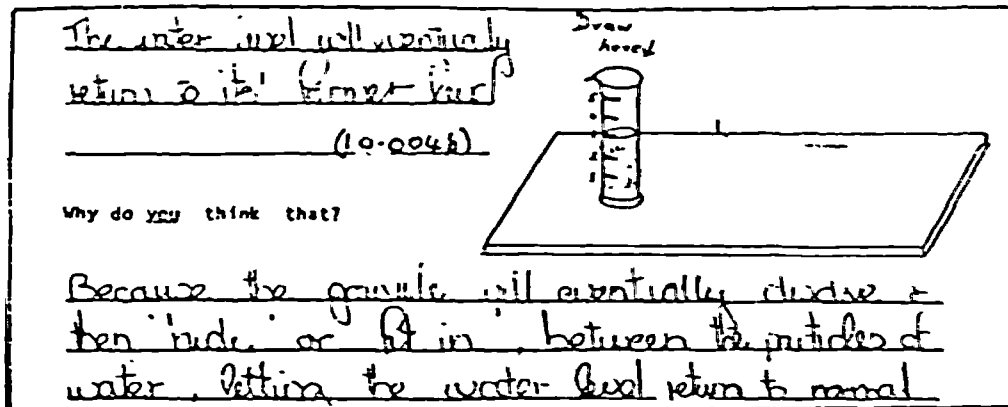 The water level will eventually
return to its' former level
(10.004b)
Draw
here!
5
4
3
2
1
Why do you think that?
Because the granule will eventually disolve &
then 'hide' or 'fit in', between the particles of
water, letting the water level return to normal